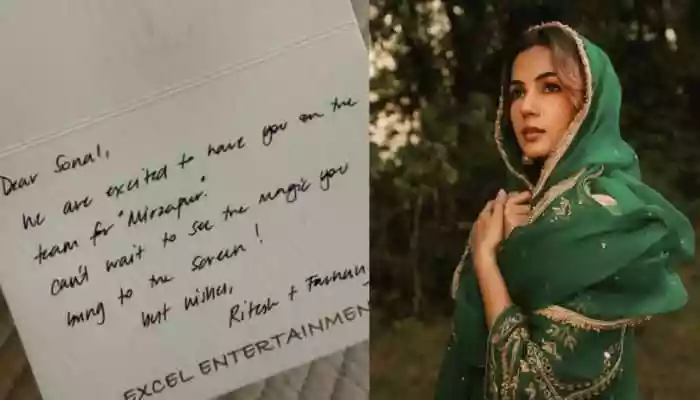 Dear Sonal,
We are excited to have you on the
team for "Mirzapur."
Can't wait to see the magic you
bring to the screen!
Best wishes,
Ritesh + Farhan
EXCEL ENTERTAINMEN